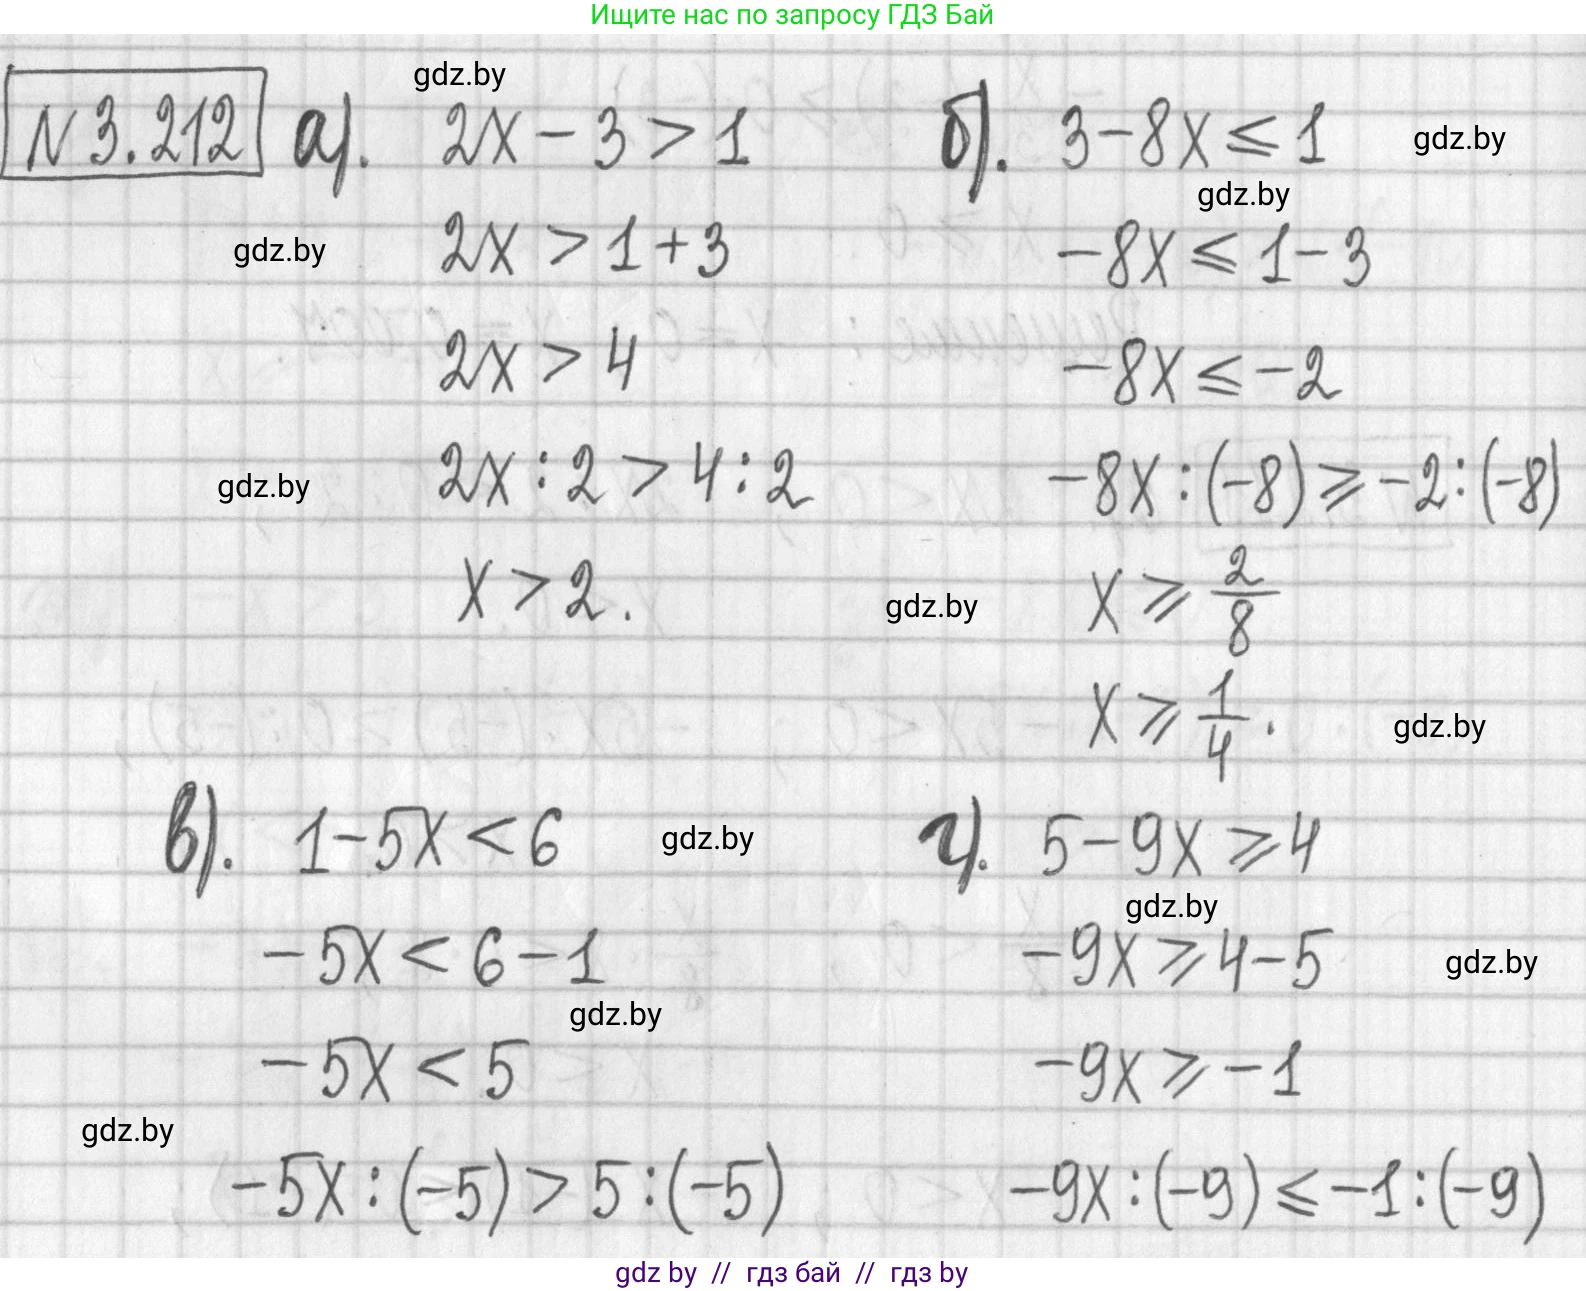 Ищите нас по запросу ГДЗ Бай
gdz.by
№ 3.212 а). 2x - 3 > 1
б). 3 - 8x ⩽ 1
gdz.by
gdz.by
gdz.by
2x > 1 + 3
-8x ⩽ 1 - 3
2x > 4
-8x ⩽ -2
gdz.by
2x : 2 > 4 : 2
-8x : (-8) ⩾ -2 : (-8)
x > 2.
gdz.by
x ⩾ 2/8
x ⩾ 1/4.
gdz.by
в). 1 - 5x < 6
gdz.by
г). 5 - 9x ⩾ 4
gdz.by
-5x < 6 - 1
-9x ⩾ 4 - 5
gdz.by
gdz.by
-5x < 5
-9x ⩾ -1
gdz.by
-5x : (-5) > 5 : (-5)
-9x : (-9) ⩽ -1 : (-9)
gdz by // гдз бай // гдз by